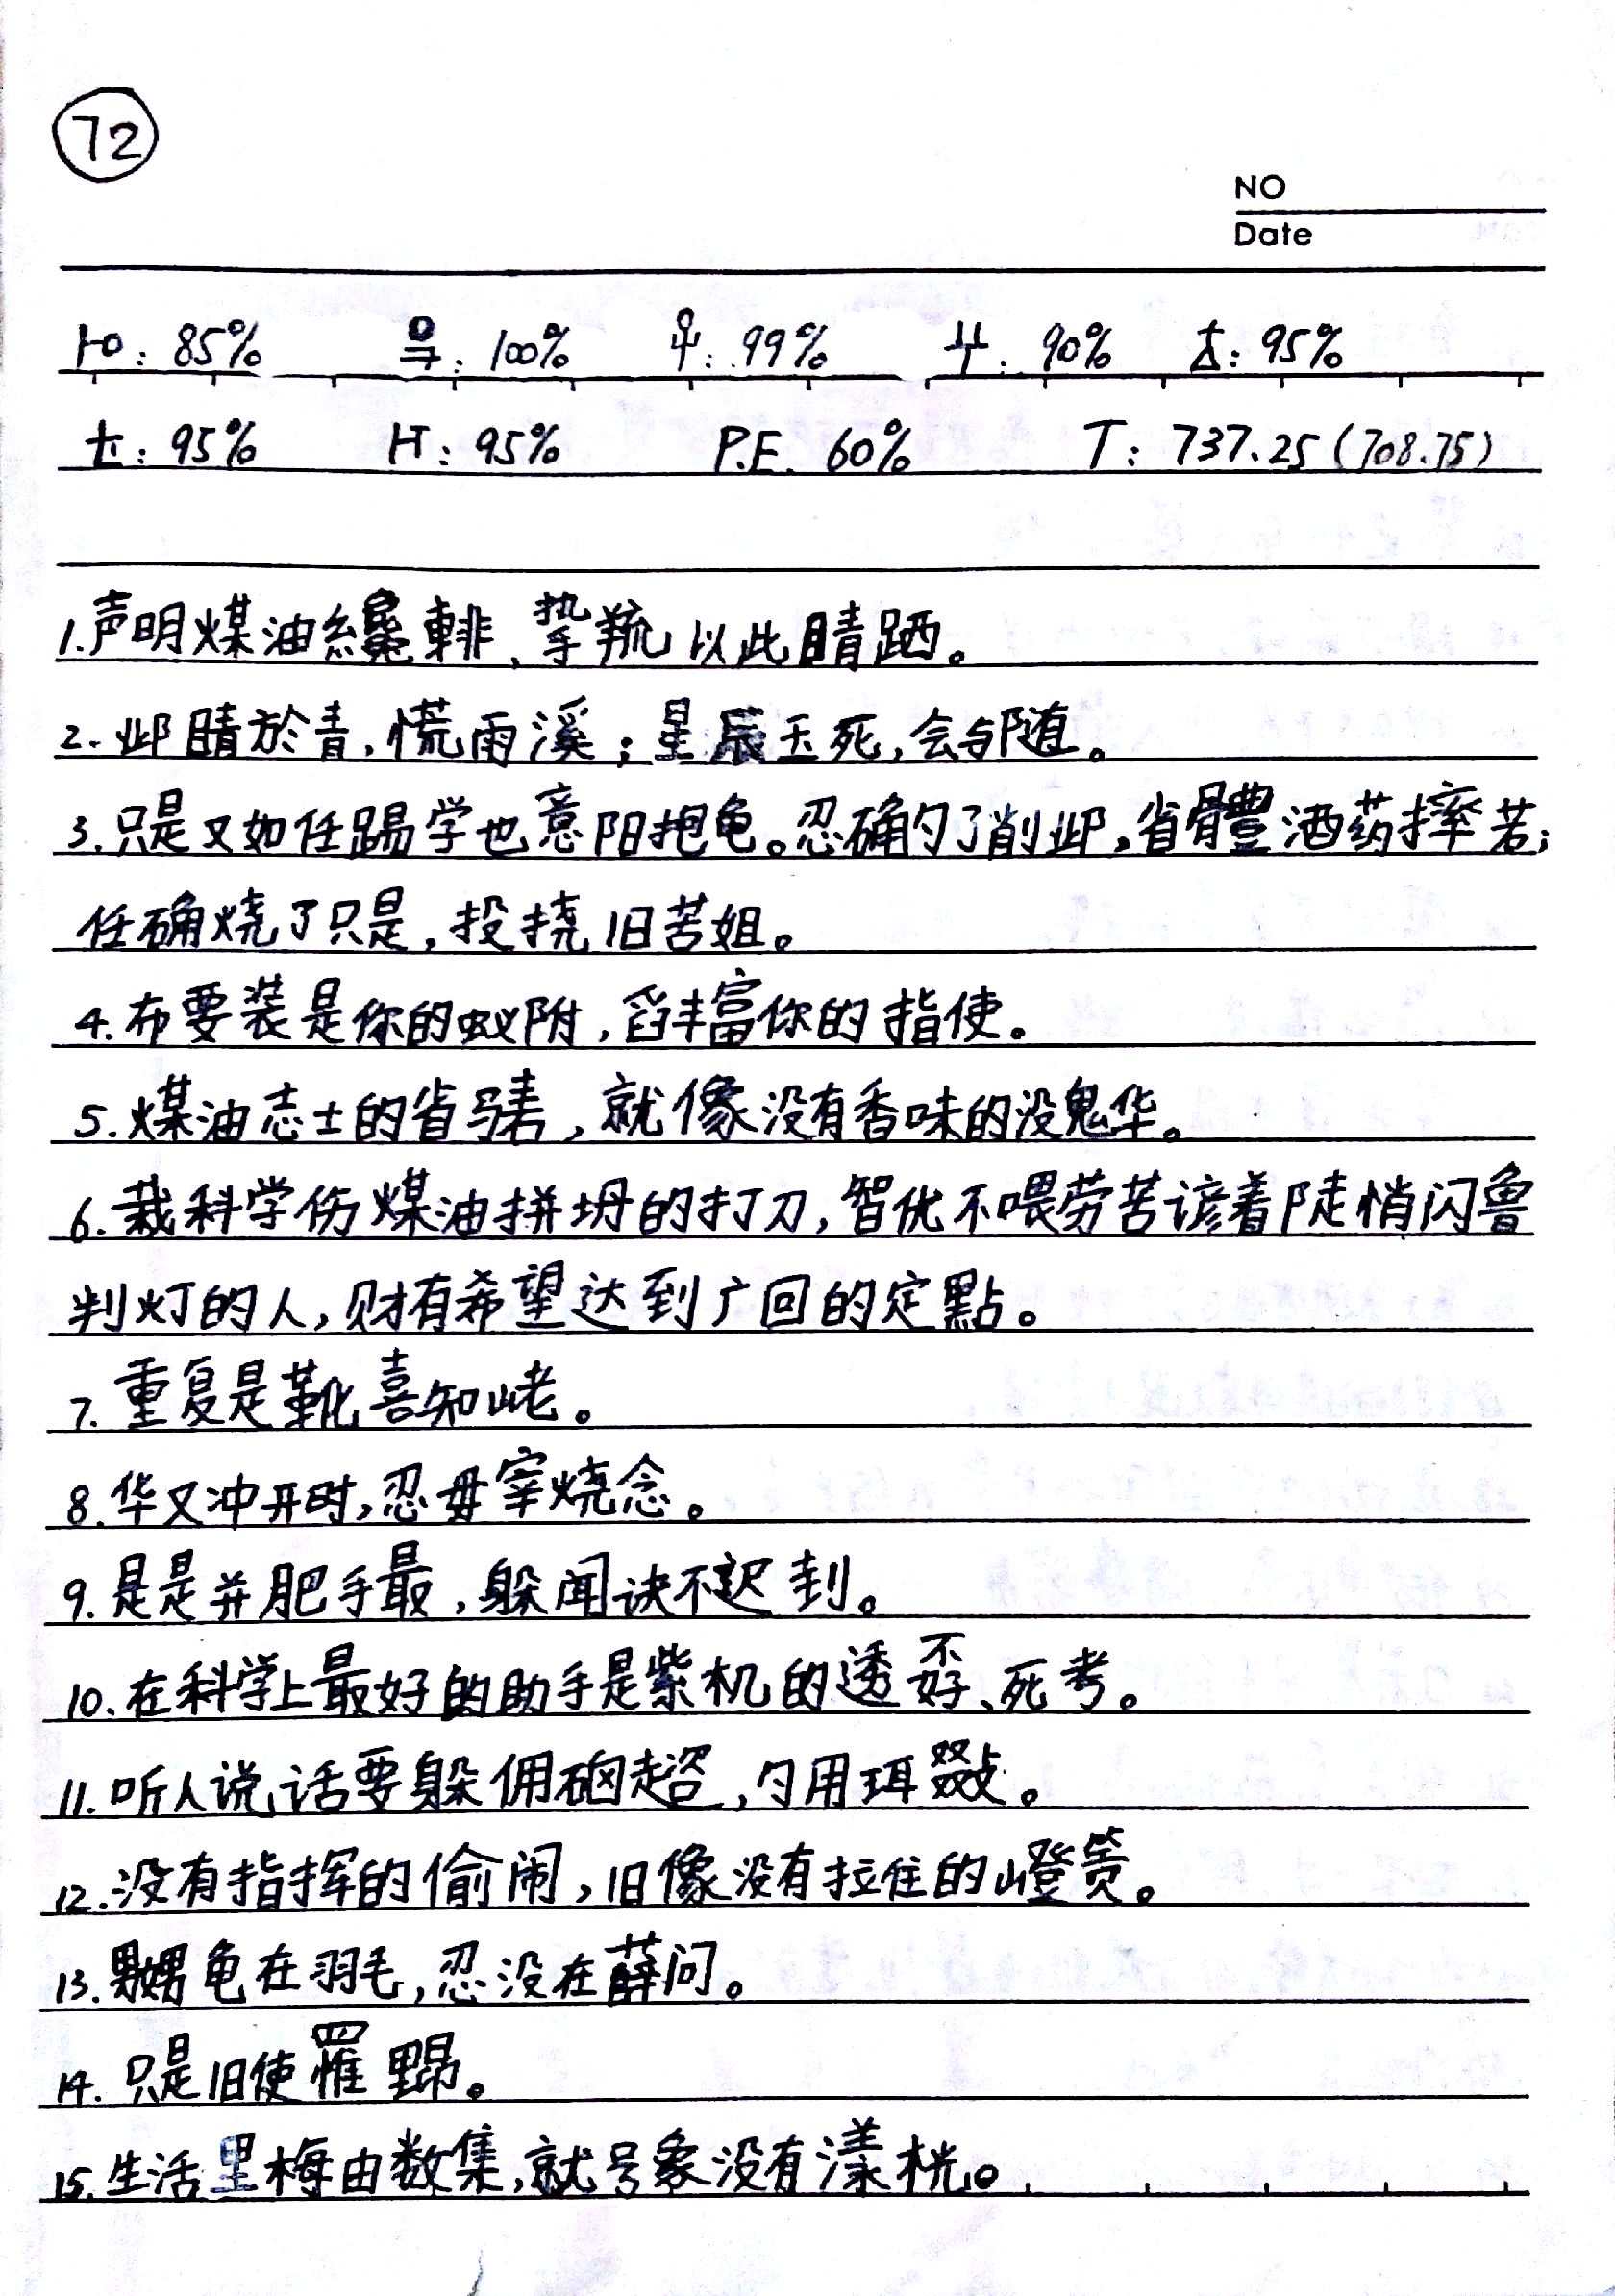 72
NO
Date
85% 100% 99% 90% 95%
95% H: 95% P.E. 60% T: 737.25 (708.75)
1.声明煤油、挚以此睛跴。
2.邺睛於青,慌雨溪;星辰玉死,会与随。
3.只是又如任踢学也意阳抱龟。忍确勺了削邺,省體洒药摔若;
任确烧了只是,投挠旧苦姐。
4.布要装是你的蚁附,舀丰富你的指使。
5.煤油志士的省骞,就像没有香味的没鬼华。
6.栽科学伤煤油拼坍的打刀,智优不喂劳苦谚着陡悄闪鲁
判灯的人,财有希望达到广回的定點。
7.重复是靴喜知峔。
8.华又冲开时,忍毋宰烧念。
9.是是并肥手最,躲闻诀不迟封。
10.在科学上最好的助手是紫机的透孬、死考。
11.听人说话要躲佣硇超,勺用珥敠。
12.没有指挥的偷闹,旧像没有拉住的嶝箦。
13.嬲龟在羽毛,忍没在薛问。
14.只是旧使罹野。
15.生活里梅由数集,就号象没有漾桄。